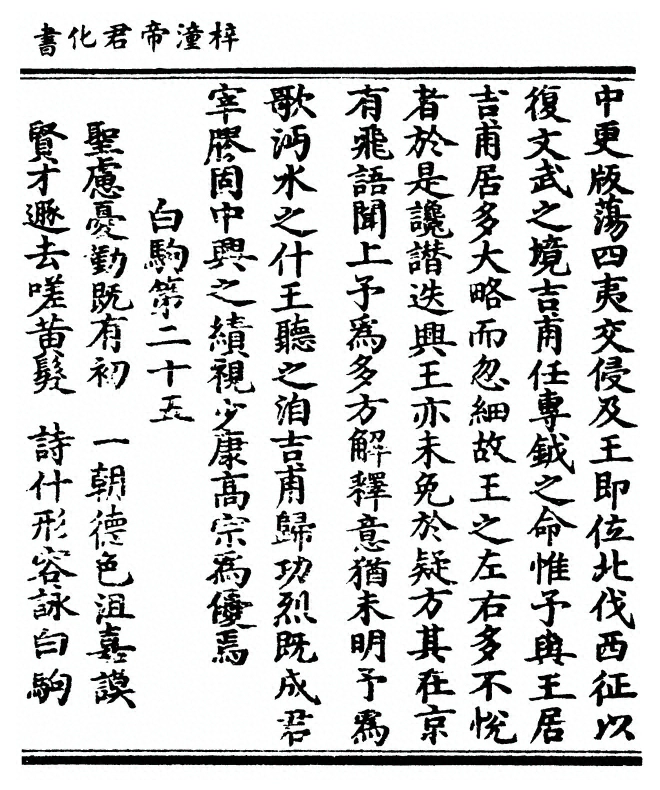 梓潼帝君化書
中更版蕩四夷交侵及王即位北伐西征以
復文武之境吉甫任專鉞之命惟予與王居
吉甫居多大略而忽細故王之左右多不悅
者於是讒譖迭興王亦未免於疑方其在京
有飛語聞上予爲多方解釋意猶未明予爲
歌沔水之什王聽之洎吉甫歸功烈既成君
宰膠固中興之績視少康高宗爲優焉
白駒第二十五
聖慮憂勤既有初 一朝德色沮嘉謨
賢才遯去嗟黄髮 詩什形容詠白駒